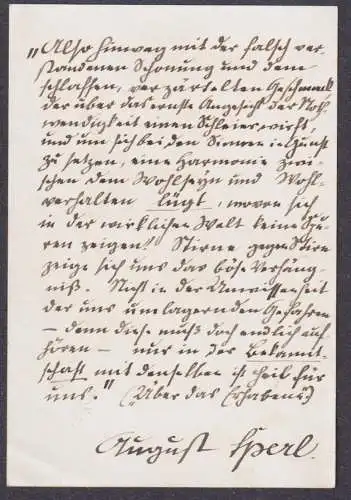 „Also hinweg mit der falsch ver-
standenen Schonung und dem
schlaffen, verzärtelten Geschmack
der über das ernste Angesicht der Noth-
wendigkeit einen Schleier wirft,
und um sich bei den Sinnen in Gunst
zu setzen, eine Harmonie zwi-
schen dem Wohlseyn und Wohl-
verhalten lügt, wovon sich
in der wirklichen Welt keine Spu-
ren zeigen! Stirne gegen Stirn
zeige sich uns das böse Verhäng-
niß. Nicht in der Unwissenheit
der uns umlagernden Gefahren
— denn diese muß doch endlich auf-
hören — nur in der Bekannt-
schaft mit denselben ist Heil für
uns." (Über das Erhabene)
August Sperl.